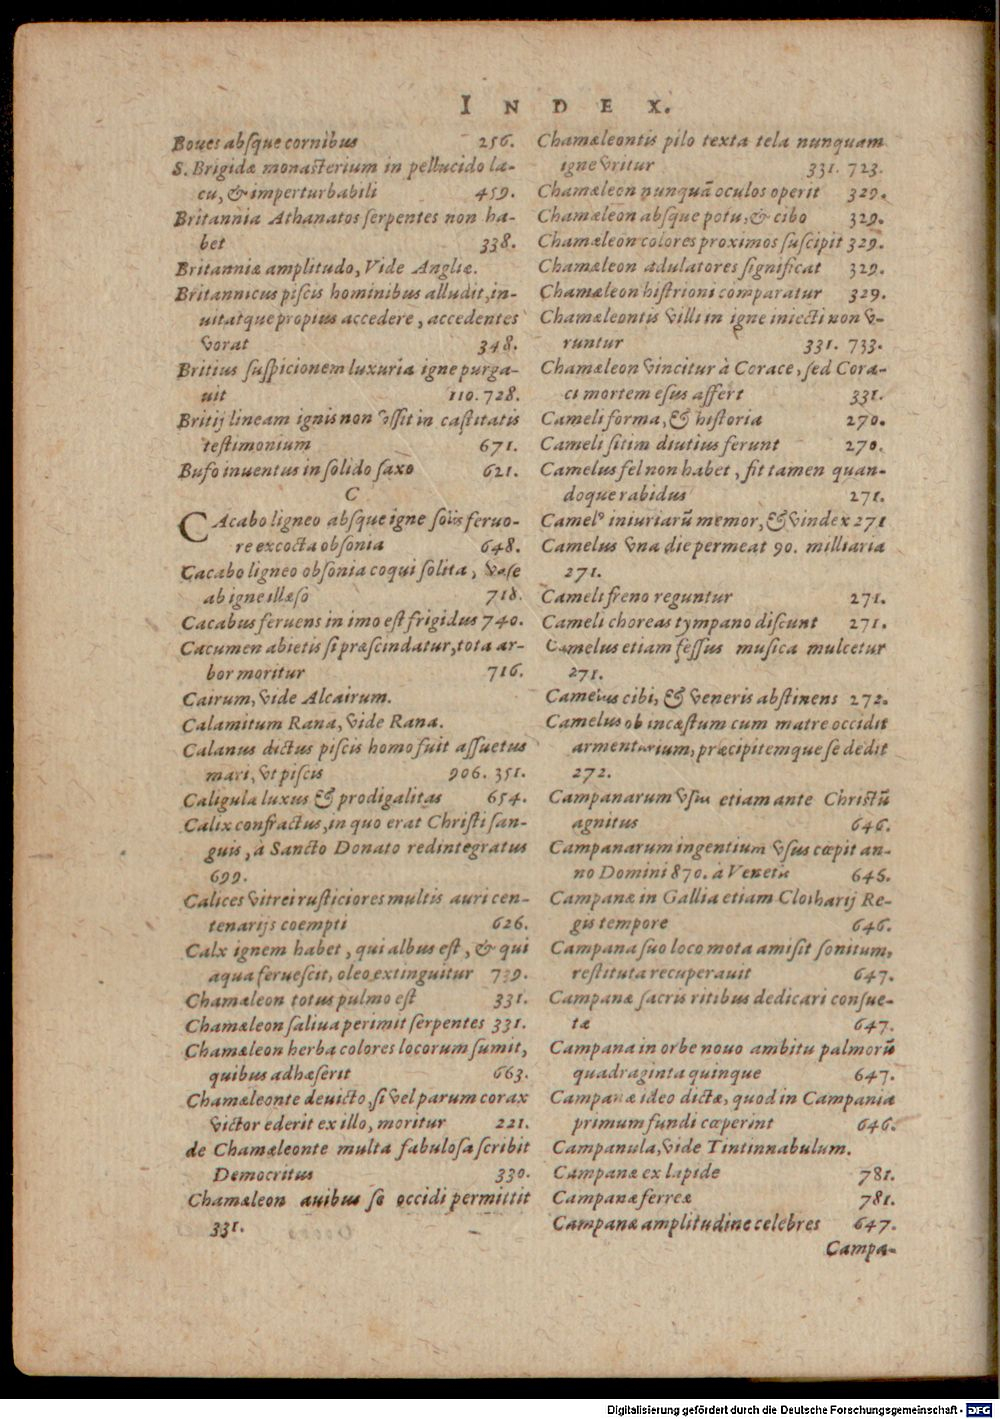 INDEX.
Boues absque cornibus 256.
S. Brigidæ monasterium in pellucido la-
cu, & imperturbabili 459.
Britannia Athanatos serpentes non ha-
bet 338.
Britanniæ amplitudo, Vide Angliæ.
Britannicus piscis hominibus alludit, in-
uitatque propius accedere, accedentes
vorat 348.
Britius suspicionem luxuriæ igne purga-
uit 110. 728.
Britij lineam ignis non vssit in castitatis
testimonium 671.
Bufo inuentus in solido saxo 621.
C
CAcabo ligneo absque igne solis feruo-
re excocta obsonia 648.
Cacabo ligneo obsonia coqui solita, vase
ab igne illæso 718.
Cacabus feruens in imo est frigidus 740.
Cacumen abietis si præscindatur, tota ar-
bor moritur 716.
Cairum, vide Alcairum.
Calamitum Rana, vide Rana.
Calanus dictus piscis homo fuit assuetus
mari, vt piscis 906. 351.
Caligula luxus & prodigalitas 654.
Calix confractus, in quo erat Christi san-
guis, à Sancto Donato redintegratus
699.
Calices vitrei rusticiores multis auri cen-
tenarijs coempti 626.
Calx ignem habet, qui albus est, & qui
aqua feruescit, oleo extinguitur 739.
Chamæleon totus pulmo est 331.
Chamæleon saliua perimit serpentes 331.
Chamæleon herba colores locorum sumit,
quibus adhæserit 663.
Chamæleonte deuicto, si vel parum corax
victor ederit ex illo, moritur 221.
de Chamæleonte multa fabulosa scribit
Democritus 330.
Chamæleon auibus se occidi permittit
331.
Chamæleontis pilo texta tela nunquam
igne vritur 331. 723.
Chamæleon nunquā oculos operit 329.
Chamæleon absque potu, & cibo 329.
Chamæleon colores proximos suscipit 329.
Chamæleon adulatores significat 329.
Chamæleon histrioni comparatur 329.
Chamæleontis villi in igne iniecti non v-
runtur 331. 733.
Chamæleon vincitur à Corace, sed Cora-
ci mortem esus affert 331.
Cameli forma, & historia 270.
Cameli sitim diutius ferunt 270.
Camelus fel non habet, fit tamen quan-
doque rabidus 271.
Camelꝰ iniuriarū memor, & vindex 271
Camelus vna die permeat 90. milliaria
271.
Cameli freno reguntur 271.
Cameli choreas tympano discunt 271.
Camelus etiam fessus musica mulcetur
271.
Camelus cibi, & veneris abstinens 272.
Camelus ob incæstum cum matre occidit
armentarium, præcipitemque se dedit
272.
Campanarum vsus etiam ante Christū
agnitus 646.
Campanarum ingentium vsus cœpit an-
no Domini 870. à Venetis 646.
Campanæ in Gallia etiam Clotharij Re-
gis tempore 646.
Campana suo loco mota amisit sonitum,
restituta recuperauit 647.
Campanæ sacris ritibus dedicari consue-
tæ 647.
Campana in orbe nouo ambitu palmorū
quadraginta quinque 647.
Campanæ ideo dictæ, quod in Campania
primum fundi cœperint 646.
Campanula, vide Tintinnabulum.
Campanæ ex lapide 781.
Campanæ ferreæ 781.
Campanæ amplitudine celebres 647.
Campa-
Digitalisierung gefördert durch die Deutsche Forschungsgemeinschaft - DFG